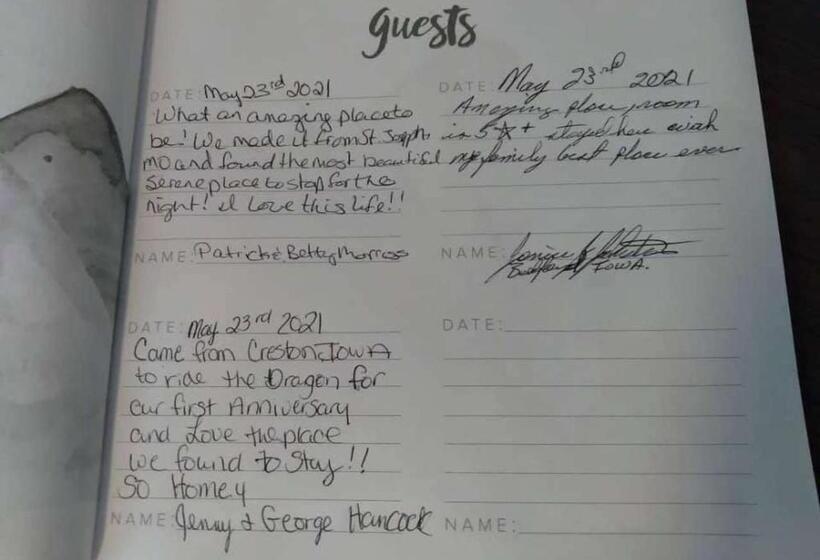 guests
DATE: May 23rd 2021
What an amazing place to
be! We made it from St. Joseph,
MO and found the most beautiful
serene place to stop for the
night! I Love this life!!
NAME: Patrick & Betty
DATE: May 23rd 2021
Amazing place, room
is 5☆+ stayed here with
my family best place ever
NAME:
IOWA.
DATE: May 23rd 2021
Came from Creston, IOWA
to ride the Dragon for
our first Anniversary
and Love the place
we found to Stay!!
SO Homey
NAME: Jenny & George Hancock
DATE:
NAME: